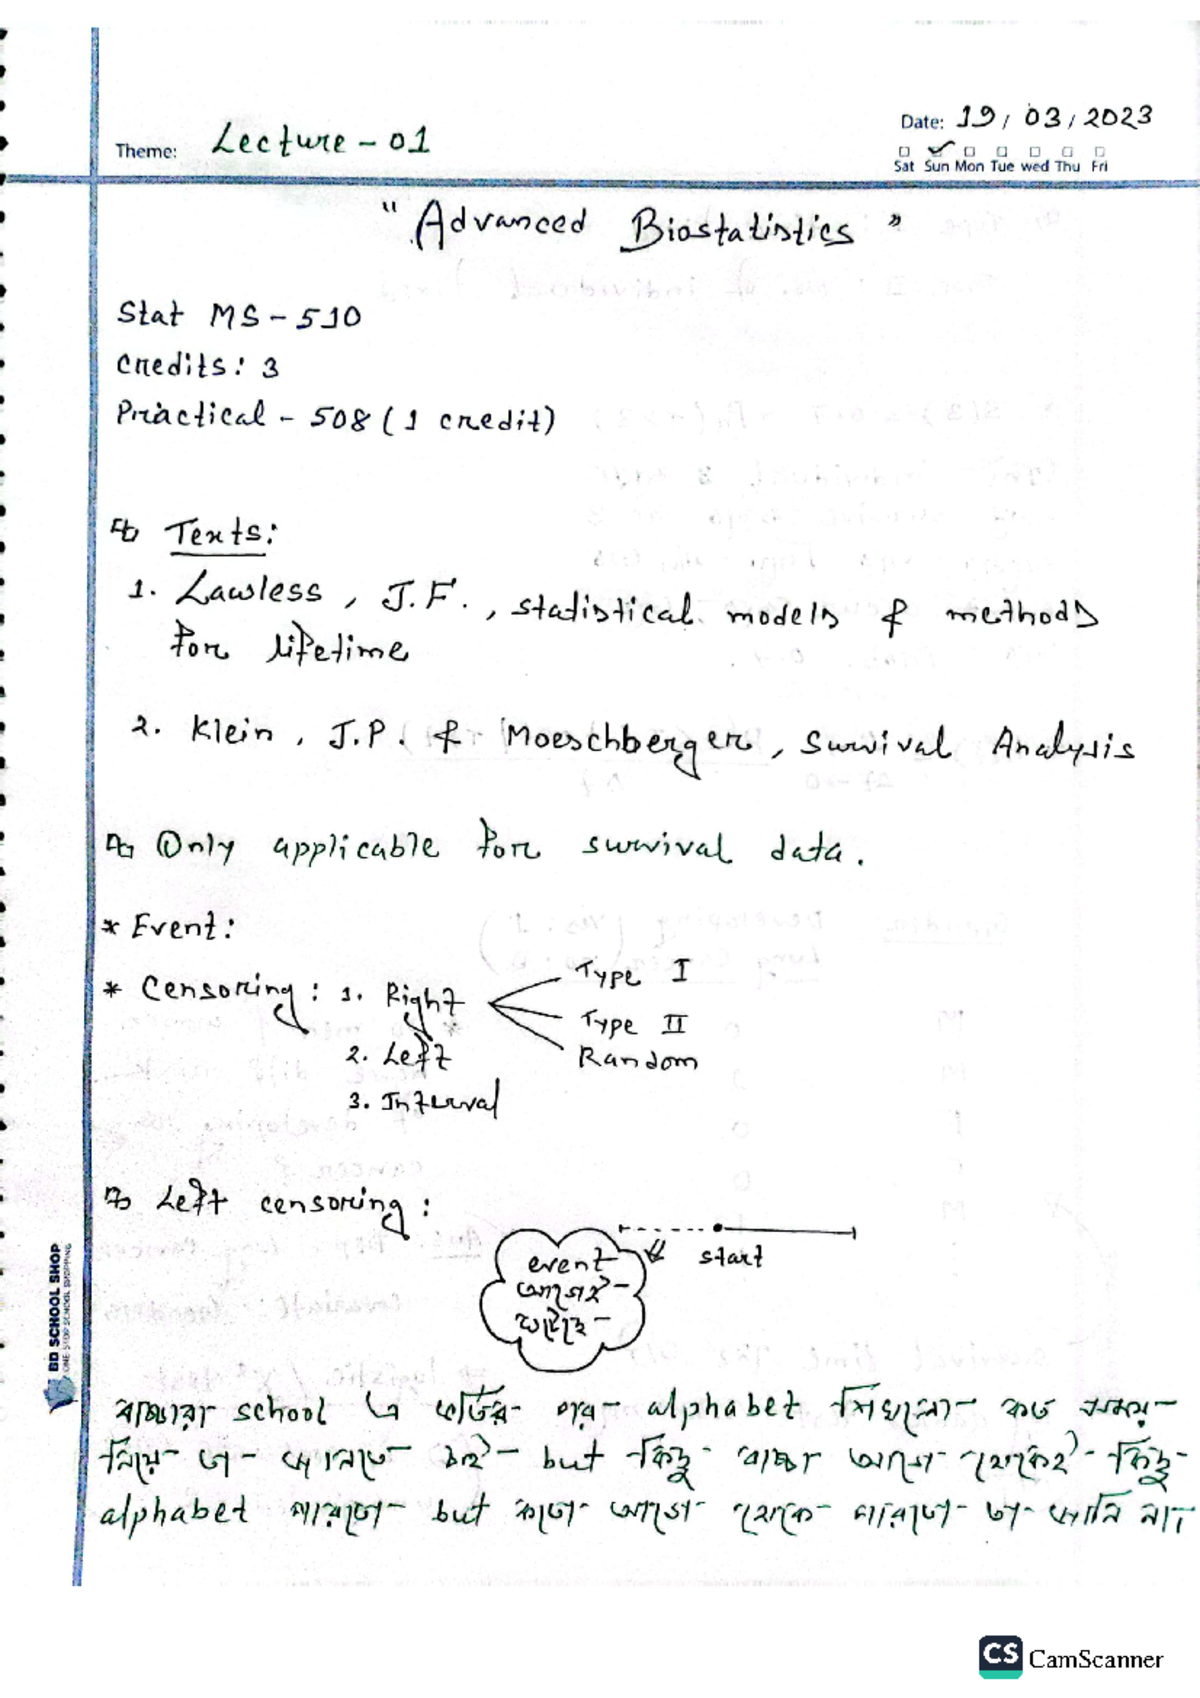 Theme: Lecture - 01
Date: 19 / 03 / 2023
Sat Sun Mon Tue wed Thu Fri
" Advanced Biostatistics "
Stat MS - 510
Credits: 3
Practical - 508 ( 1 credit)
Texts:
1. Lawless, J.F., statistical models & methods
for lifetime
2. Klein, J.P. & Moeschberger, Survival Analysis
Only applicable for survival data.
* Event:
* Censoring: 1. Right
Type I
Type II
Random
2. Left
3. Interval
Left censoring:
start
event
আগেই
ঘটেছে
বাচ্চারা school এ ভর্তির পর alphabet শিখলো কত সময়
নিয়ে তা জানতে চাই but কিছু বাচ্চা আগে থেকেই কিছু
alphabet পারতো but কতো আগে থেকে পারতো তা জানি না।
BD SCHOOL SHOP
ONE STOP SCHOOL SHOPPING
CS CamScanner